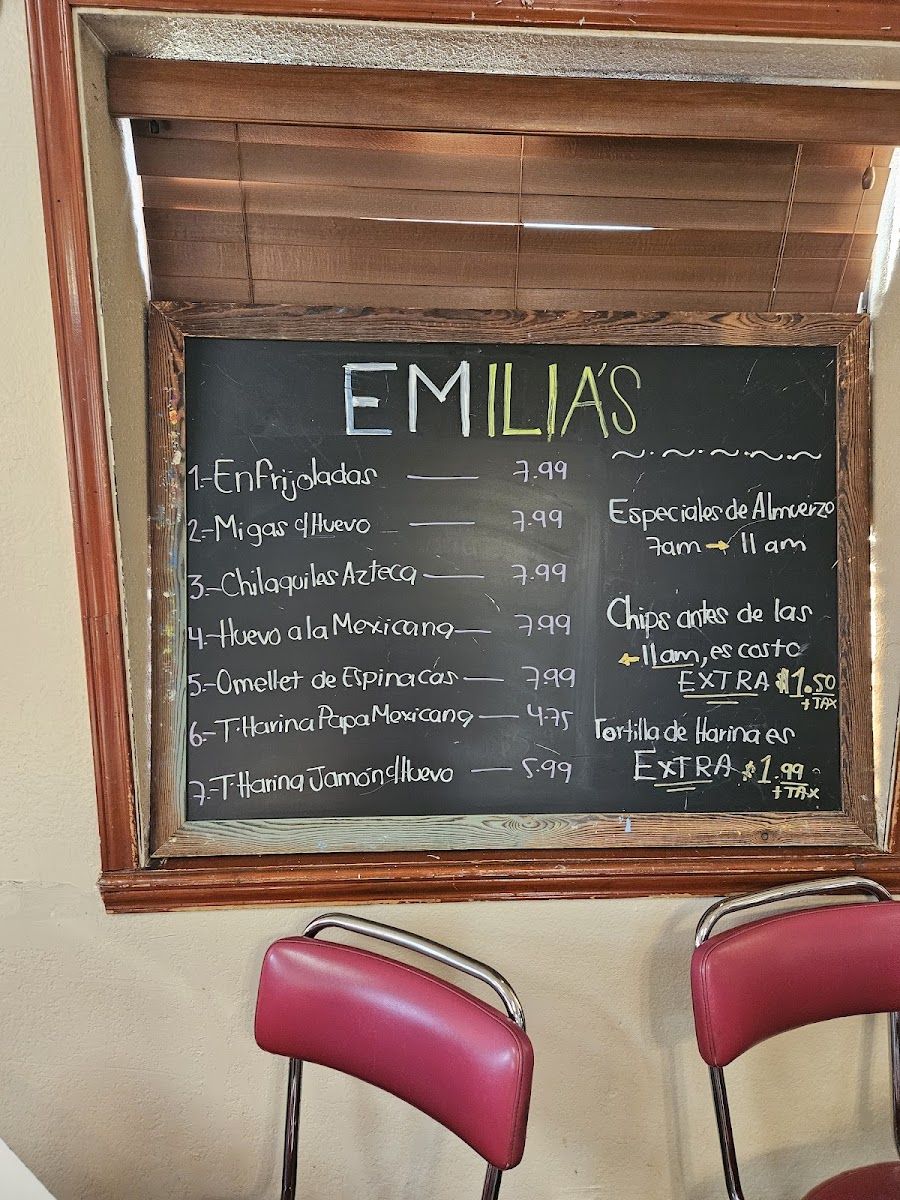 EMILIA'S
1.-Enfrijoladas — 7.99
2.-Migas c/Huevo — 7.99
3.-Chilaquiles Azteca — 7.99
4.-Huevo a la Mexicana — 7.99
5.-Omellet de Espinacas — 7.99
6.-T. Harina Papa Mexicana — 4.75
7.-T. Harina Jamón c/Huevo — 5.99
~.~.~.~.~
Especiales de Almuerzo
7am → 11 am
Chips antes de las
← 11am, es costo
EXTRA $1.50
+TAX
Tortilla de Harina es
EXTRA $1.99
+TAX